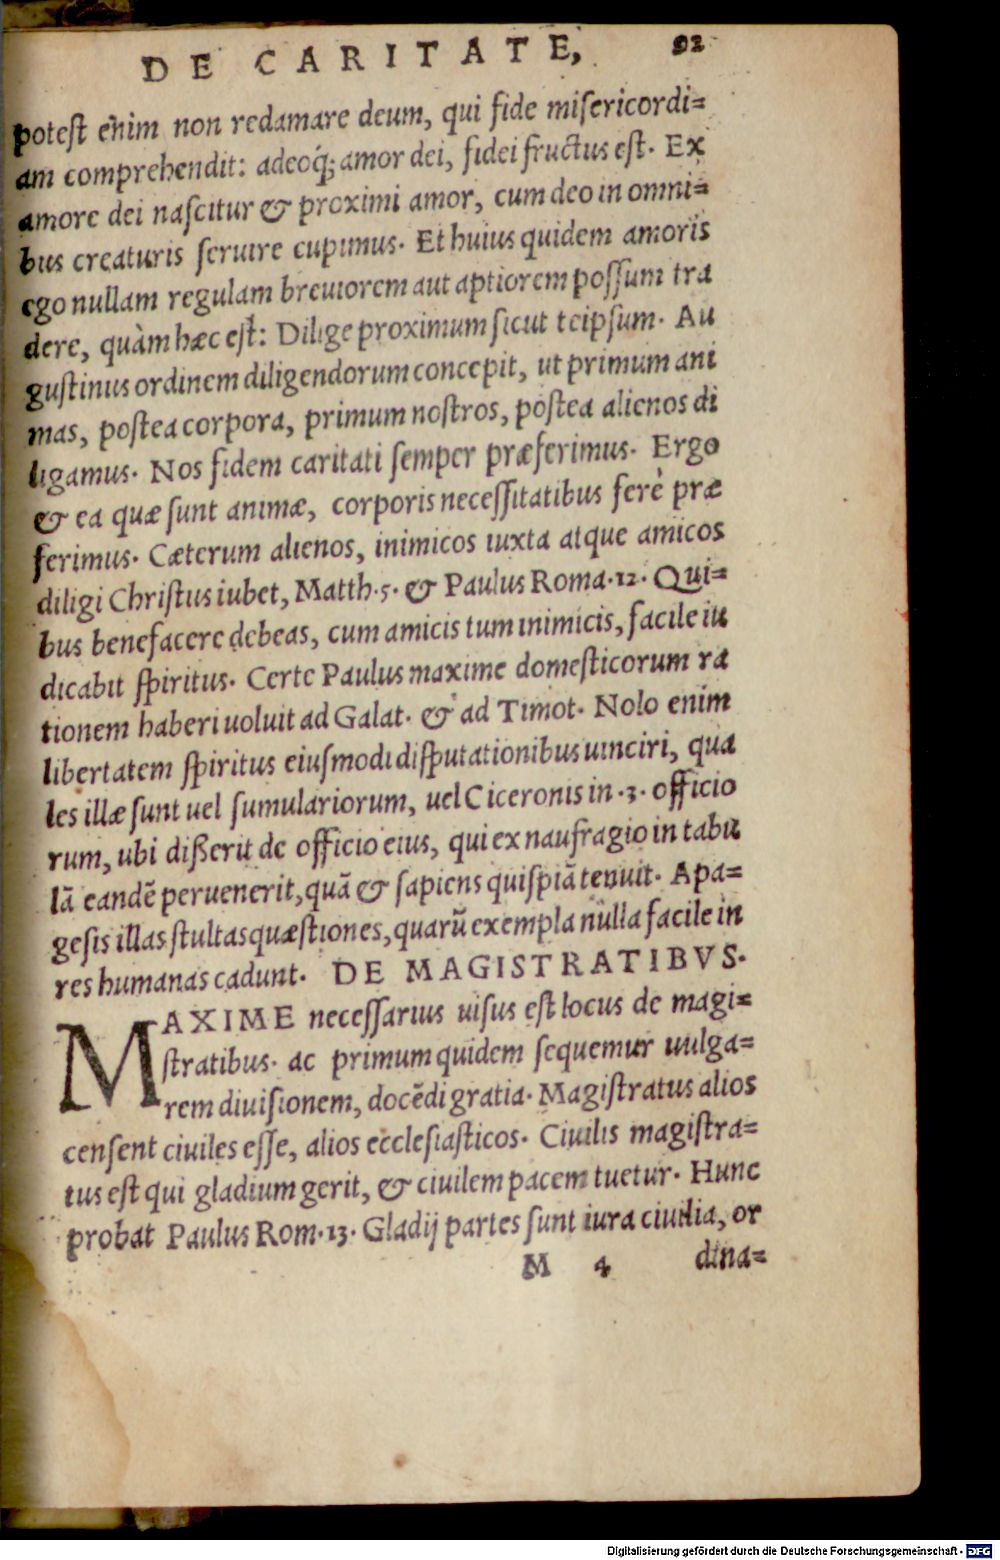 DE CARITATE, 92
potest enim non redamare deum, qui fide misericordi=
am comprehendit: adeoq́; amor dei, fidei fructus est. Ex
amore dei nascitur & proximi amor, cum deo in omni=
bus creaturis seruire cupimus. Et huius quidem amoris
ego nullam regulam breuiorem aut aptiorem possum tra
dere, quàm hæc est: Dilige proximum sicut teipsum. Au
gustinus ordinem diligendorum concepit, ut primum ani
mas, postea corpora, primum nostros, postea alienos di
ligamus. Nos fidem caritati semper præferimus. Ergo
& ea quæ sunt animæ, corporis necessitatibus ferè præ
ferimus. Cæterum alienos, inimicos iuxta atque amicos
diligi Christus iubet, Matth.5. & Paulus Roma.12. Qui=
bus benefacere debeas, cum amicis tum inimicis, facile iu
dicabit spiritus. Certe Paulus maxime domesticorum ra
tionem haberi uoluit ad Galat. & ad Timot. Nolo enim
libertatem spiritus eiusmodi disputationibus uinciri, qua
les illæ sunt uel sumulariorum, uel Ciceronis in .3. officio
rum, ubi dißerit de officio eius, qui ex naufragio in tabu
lā eandē peruenerit, quā & sapiens quispiā tenuit. Apa=
gesis illas stultas quæstiones, quarū exempla nulla facile in
res humanas cadunt. DE MAGISTRATIBVS.
MAXIME necessarius uisus est locus de magi=
stratibus. ac primum quidem sequemur uulga=
rem diuisionem, docēdi gratia. Magistratus alios
censent ciuiles esse, alios ecclesiasticos. Ciuilis magistra=
tus est qui gladium gerit, & ciuilem pacem tuetur. Hunc
probat Paulus Rom.13. Gladij partes sunt iura ciuilia, or
M 4 dina=
Digitalisierung gefördert durch die Deutsche Forschungsgemeinschaft - DFG